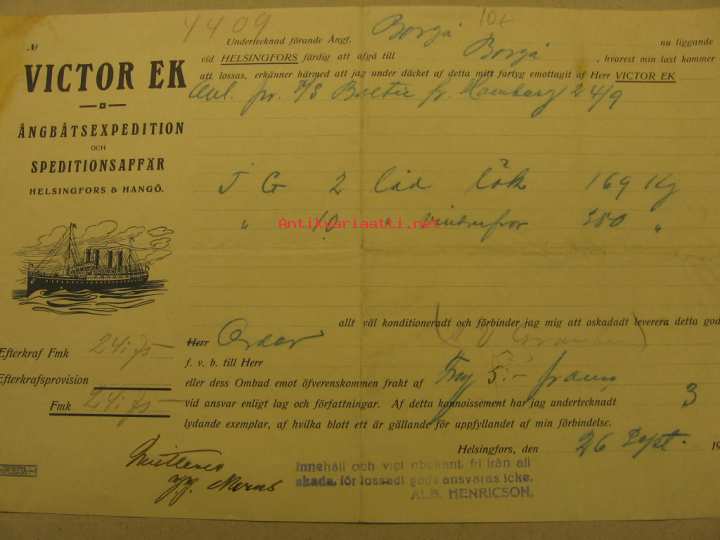 4409
10x
№
Undertecknad förande Ångf. Borgå nu liggande
vid HELSINGFORS färdig att afgå till Borgå, hvarest min laxt kommer
att lossas, erkänner härmed att jag under däcket af detta mitt fartyg emottagit af Herr VICTOR EK
VICTOR EK
ÅNGBÅTSEXPEDITION
OCH
SPEDITIONSAFFÄR
HELSINGFORS & HANGÖ.
pr. S/S Baltic fr. Hamburg 24/9
J G 2 låd lök 169 Kg
" 10 " vindrufvor 350 "
Antikvariaatti.net
allt väl konditioneradt och förbinder jag mig att oskadadt leverera detta god
Herr Order
f. v. b. till Herr
Efterkraf Fmk 241:75
Efterkrafsprovision
Fmk 241:75
eller dess Ombud emot öfverenskommen frakt af Fmk 5:- franco
vid ansvar enligt lag och författningar. Af detta kannoissement har jag undertecknadt 3
lydande exemplar, af hvilka blott ett är gällande för uppfyllandet af min förbindelse.
Helsingfors, den 26 Sept. 19
Innehåll och vigt obekant, fri från all
skada, för lossadt gods ansvaras icke.
ALB. HENRICSON.